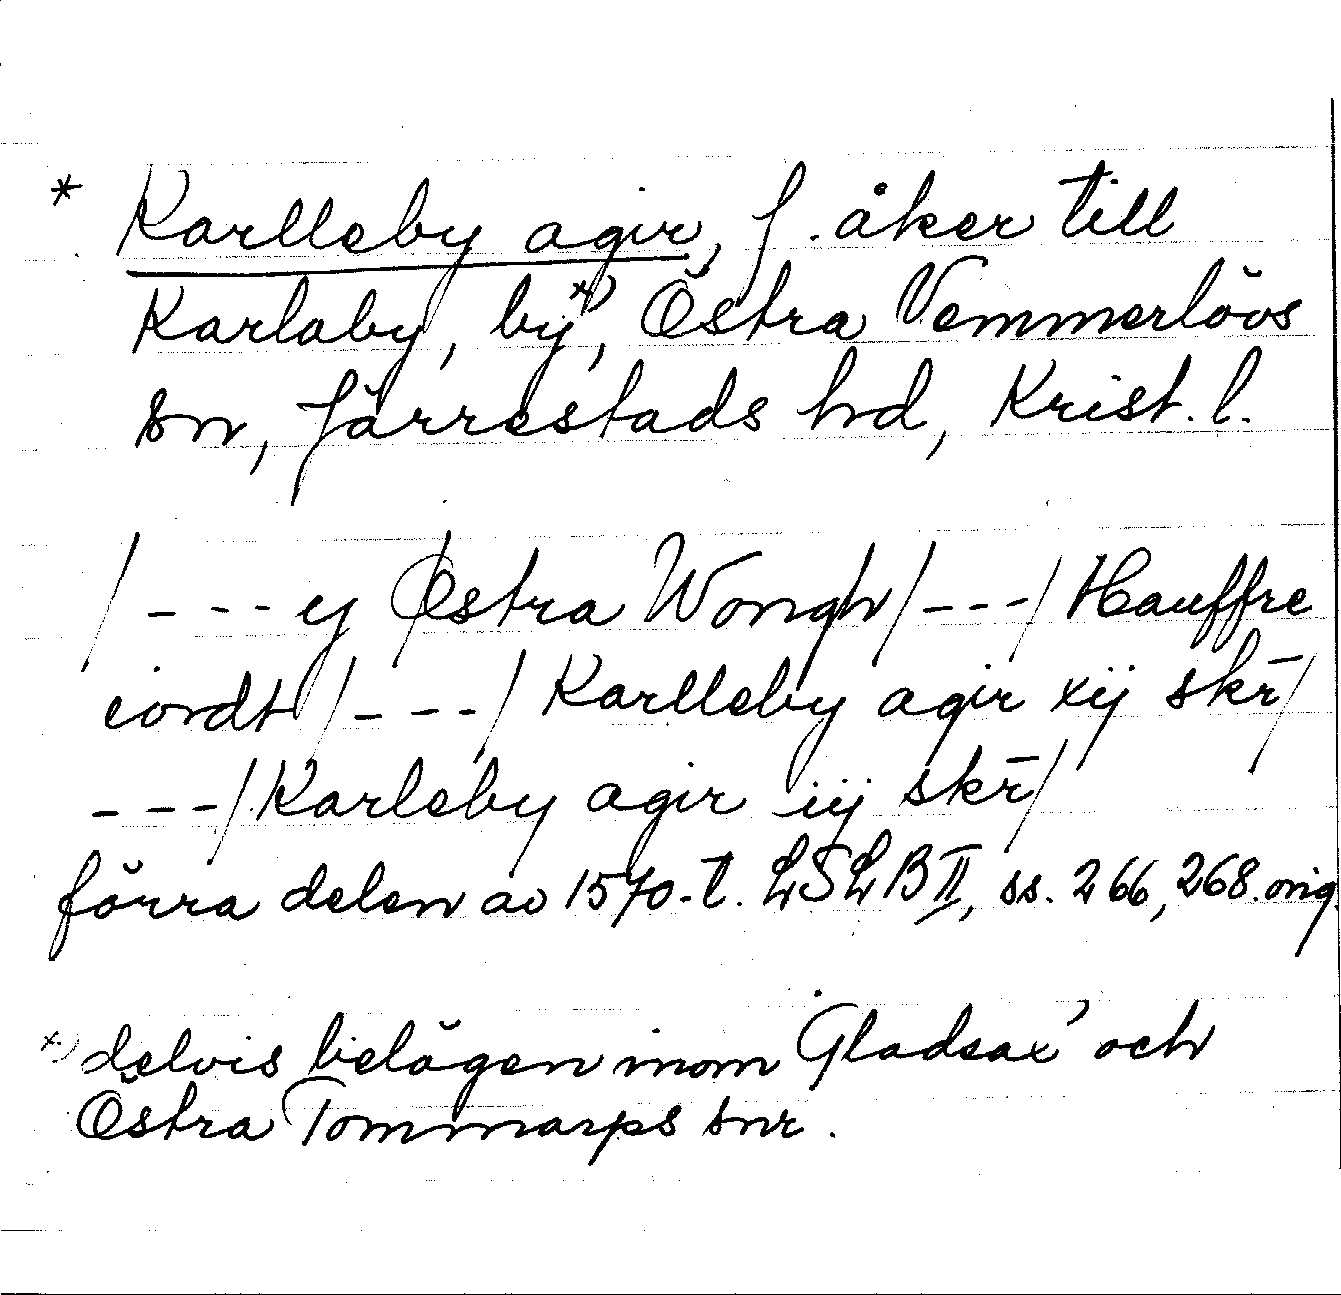 * Karlleby agir, f. åker till
Karlaby, by x), Östra Vemmerlövs
sn, Järrestads hd, Krist. l.
/ - - - ej Østra Wongh / - - - / Hauffre
iordt / - - - / Karlleby agir xij skr̄ /
- - - / Karleby agir iij skr̄ /
förra delen av 1570-t. LSLB II, ss. 266, 268. orig.
x) delvis belägen inom Gladsax' och
Östra Tommarps snr.